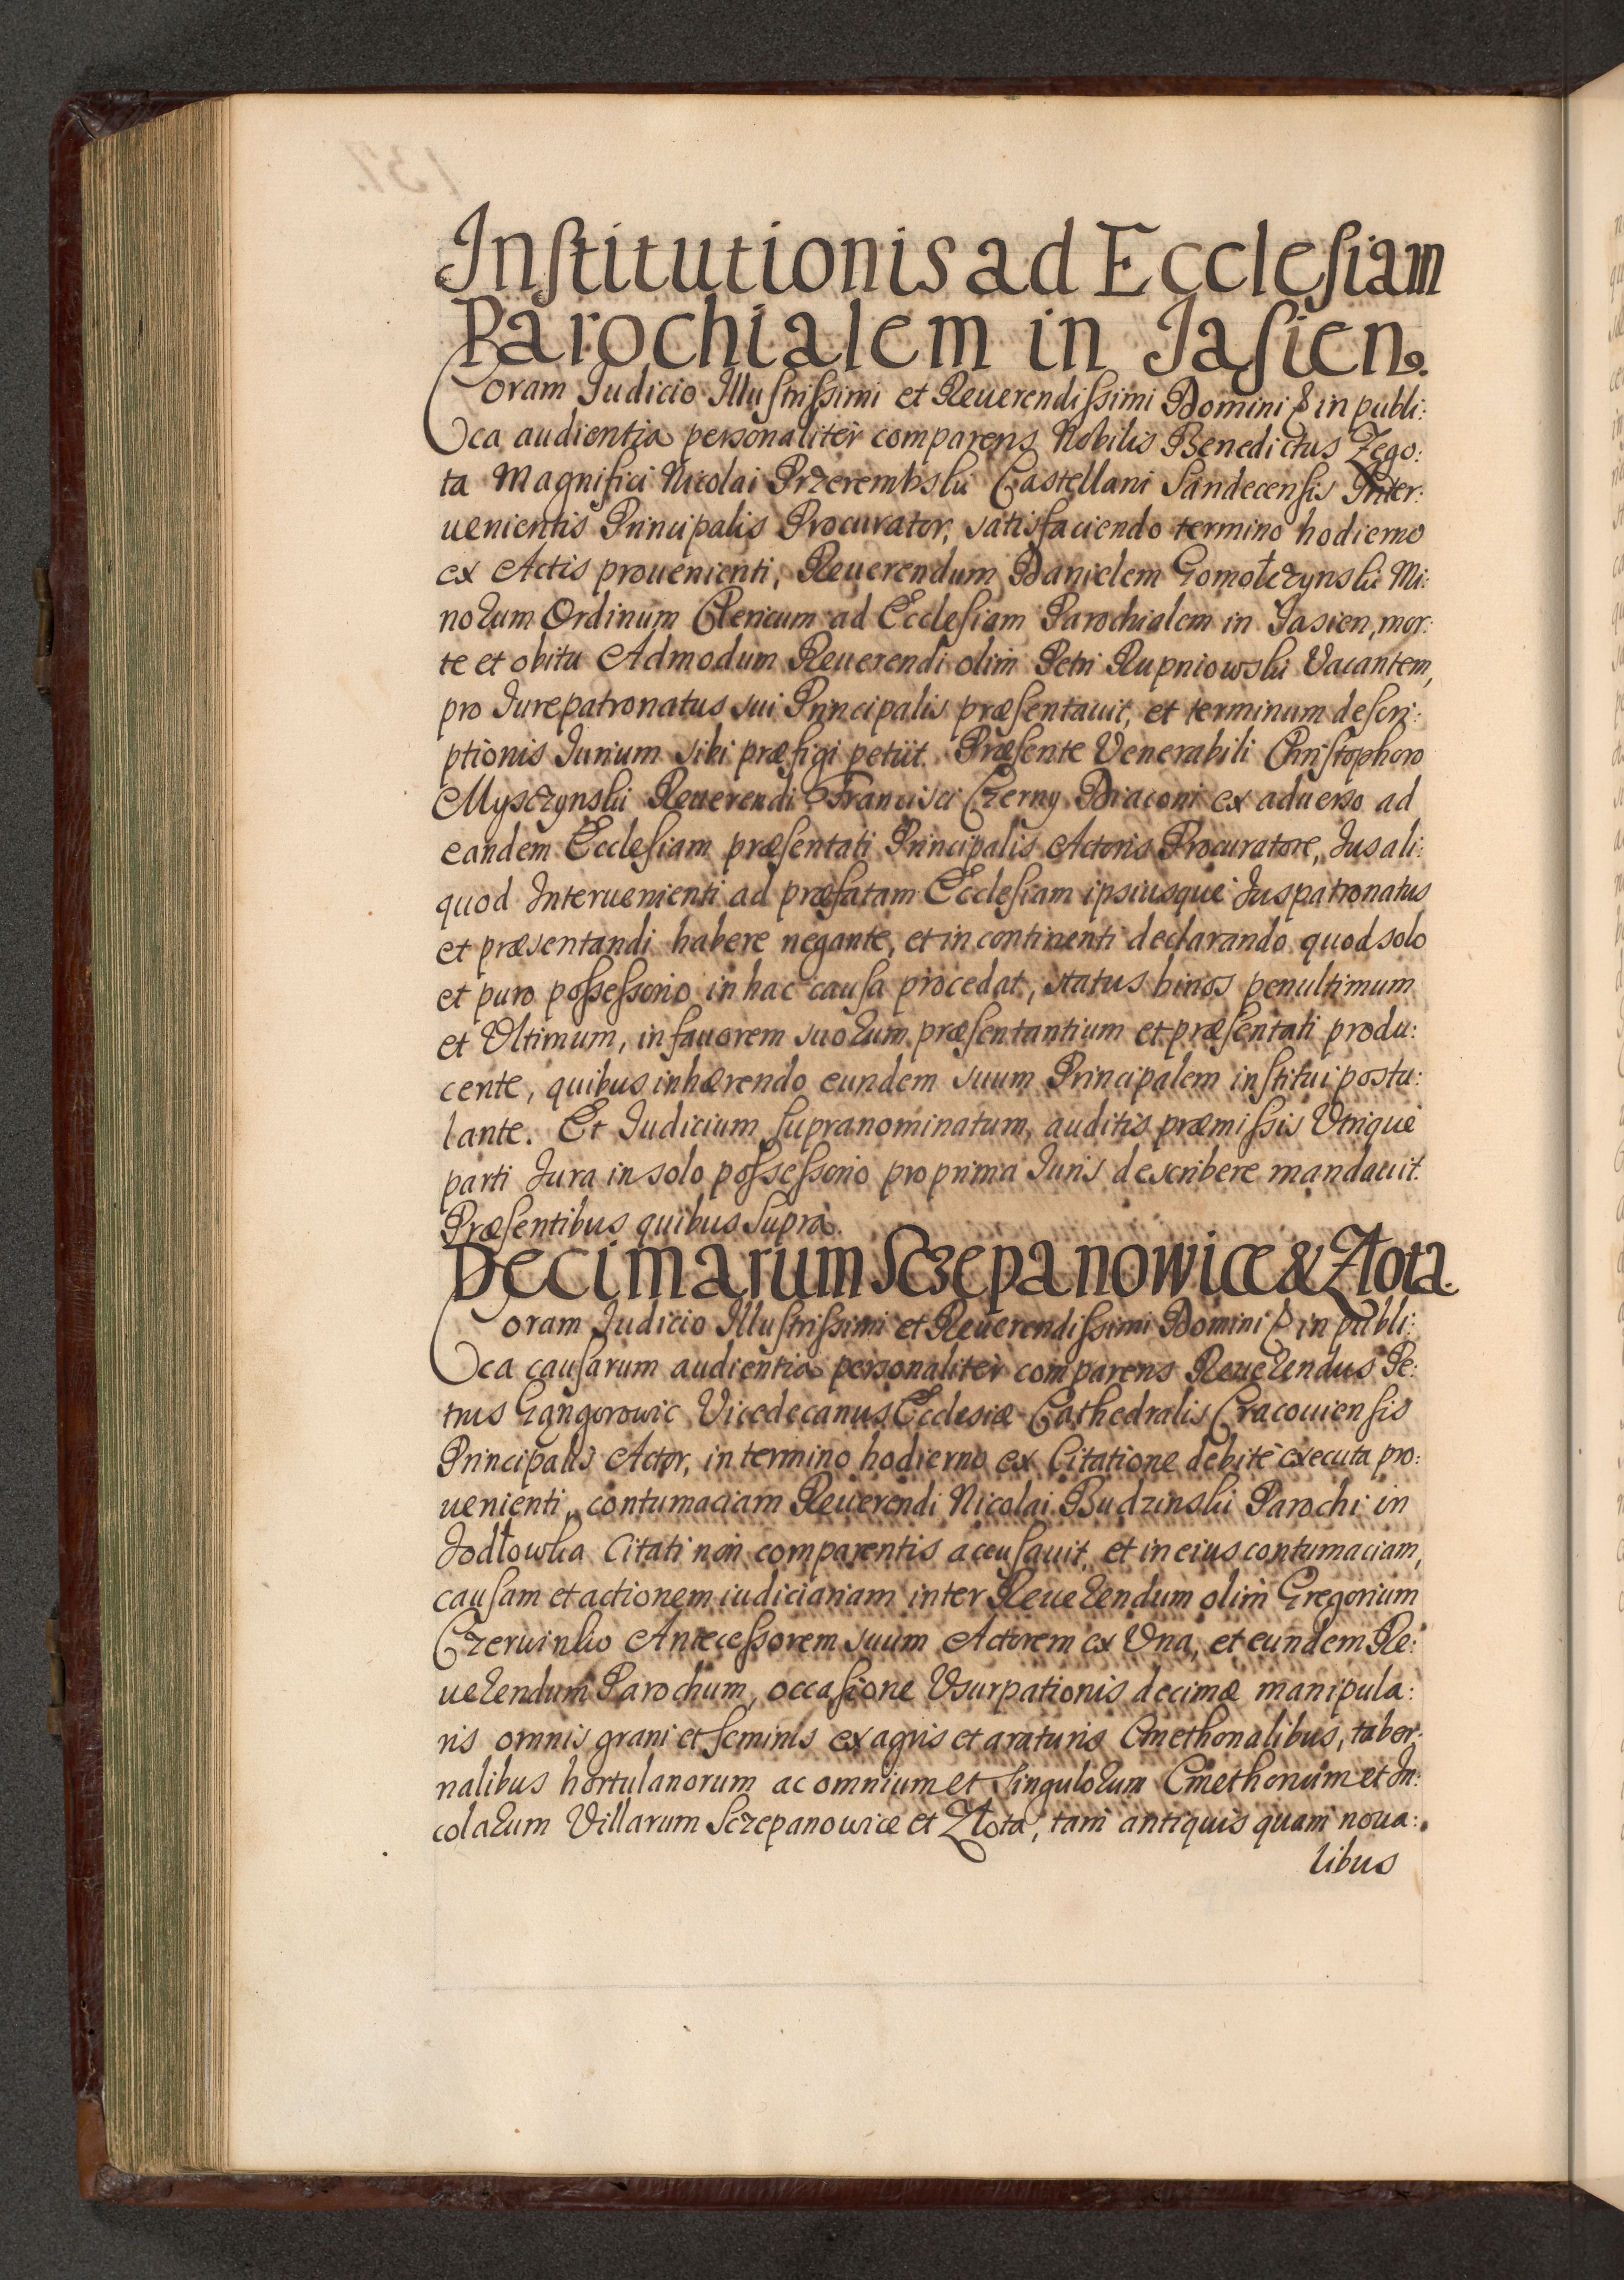 Institutionis ad Ecclesiam
Parochialem in Jasien.
Coram Judicio Illustrissimi et Reuerendissimi Domini & in publi:
ca audientia personaliter comparens Nobilis Benedictus Zego:
ta Magnifici Nicolai Przerembski Castellani Sandecensis Inter:
uenientis Principalis Procurator, satisfaciendo termino hodierno
ex Actis prouenienti, Reuerendum Danielem Gomołczynski Mi:
norum Ordinum Clericum ad Ecclesiam Parochialem in Jasien, mor:
te et obitu Admodum Reuerendi olim Petri Rupniowski Vacantem,
pro Jurepatronatus sui Principalis præsentauit, et terminum descri:
ptionis Jurium sibi præfigi petiit. Præsente Venerabili Christophoro
Mysczynski Reuerendi Francisci Czerny Diaconi ex aduerso ad
eandem Ecclesiam præsentati Principalis Actoris Procuratore, Jus ali:
quod Interuenienti ad præfatam Ecclesiam ipsiusque Juspatronatus
et præsentandi habere negante, et in continenti declarando quod solo
et puro possessorio in hac causa procedat, status binos penultimum
et Vltimum, in fauorem suorum præsentantium et præsentati produ:
cente, quibus inhærendo eundem suum Principalem institui postu:
lante. Et Judicium supranominatum, auditis præmissis Vtrique
parti Jura in solo possessorio pro prima Juris describere mandauit.
Præsentibus quibus supra.
Decimarum Sczepanowice & Złota.
Coram Judicio Illustrissimi et Reuerendissimi Domini & in publi:
ca causarum audientia personaliter comparens Reuerendus Pe:
trus Gąngorowic Vicedecanus Ecclesiæ Cathedralis Cracouiensis
Principalis Actor, in termino hodierno ex Citatione debite executa pro:
uenienti, contumaciam Reuerendi Nicolai Budzinski Parochi in
Jodłowka Citati non comparentis accusauit, et in eius contumaciam,
causam et actionem iudiciariam inter Reuerendum olim Gregorium
Czerwinko Antecessorem suum Actorem ex Vna, et eundem Re:
uerendum Parochum, occasione Vsurpationis decimæ manipula:
ris omnis grani et seminis ex agris et araturis Cmethonalibus, taber:
nalibus hortulanorum ac omnium et singulorum Cmethonum et In:
colarum Villarum Sczepanowice et Złota, tam antiquis quam noua:
libus